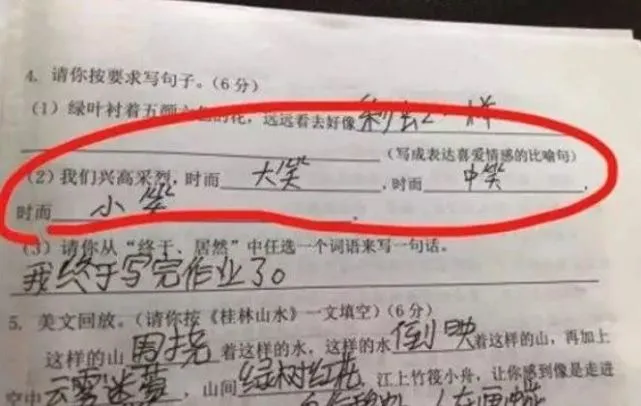 4. 请你按要求写句子。(6分)
(1) 绿叶衬着五颜六色的花，远远看去好像 一样
(写成表达喜爱情感的比喻句)
(2) 我们兴高采烈，时而 大笑 ，时而 中笑 ，
时而 小笑 。
(3) 请你从“终于、居然”中任选一个词语来写一句话。
我终于写完作业了。
5. 美文回放。(请你按《桂林山水》一文填空)(6分)
这样的山 围挠 着这样的水，这样的水 倒映 着这样的山，再加上
空中 云雾迷蒙 ，山间 绿树红花 ，江上竹筏小舟，让你感到像是走进